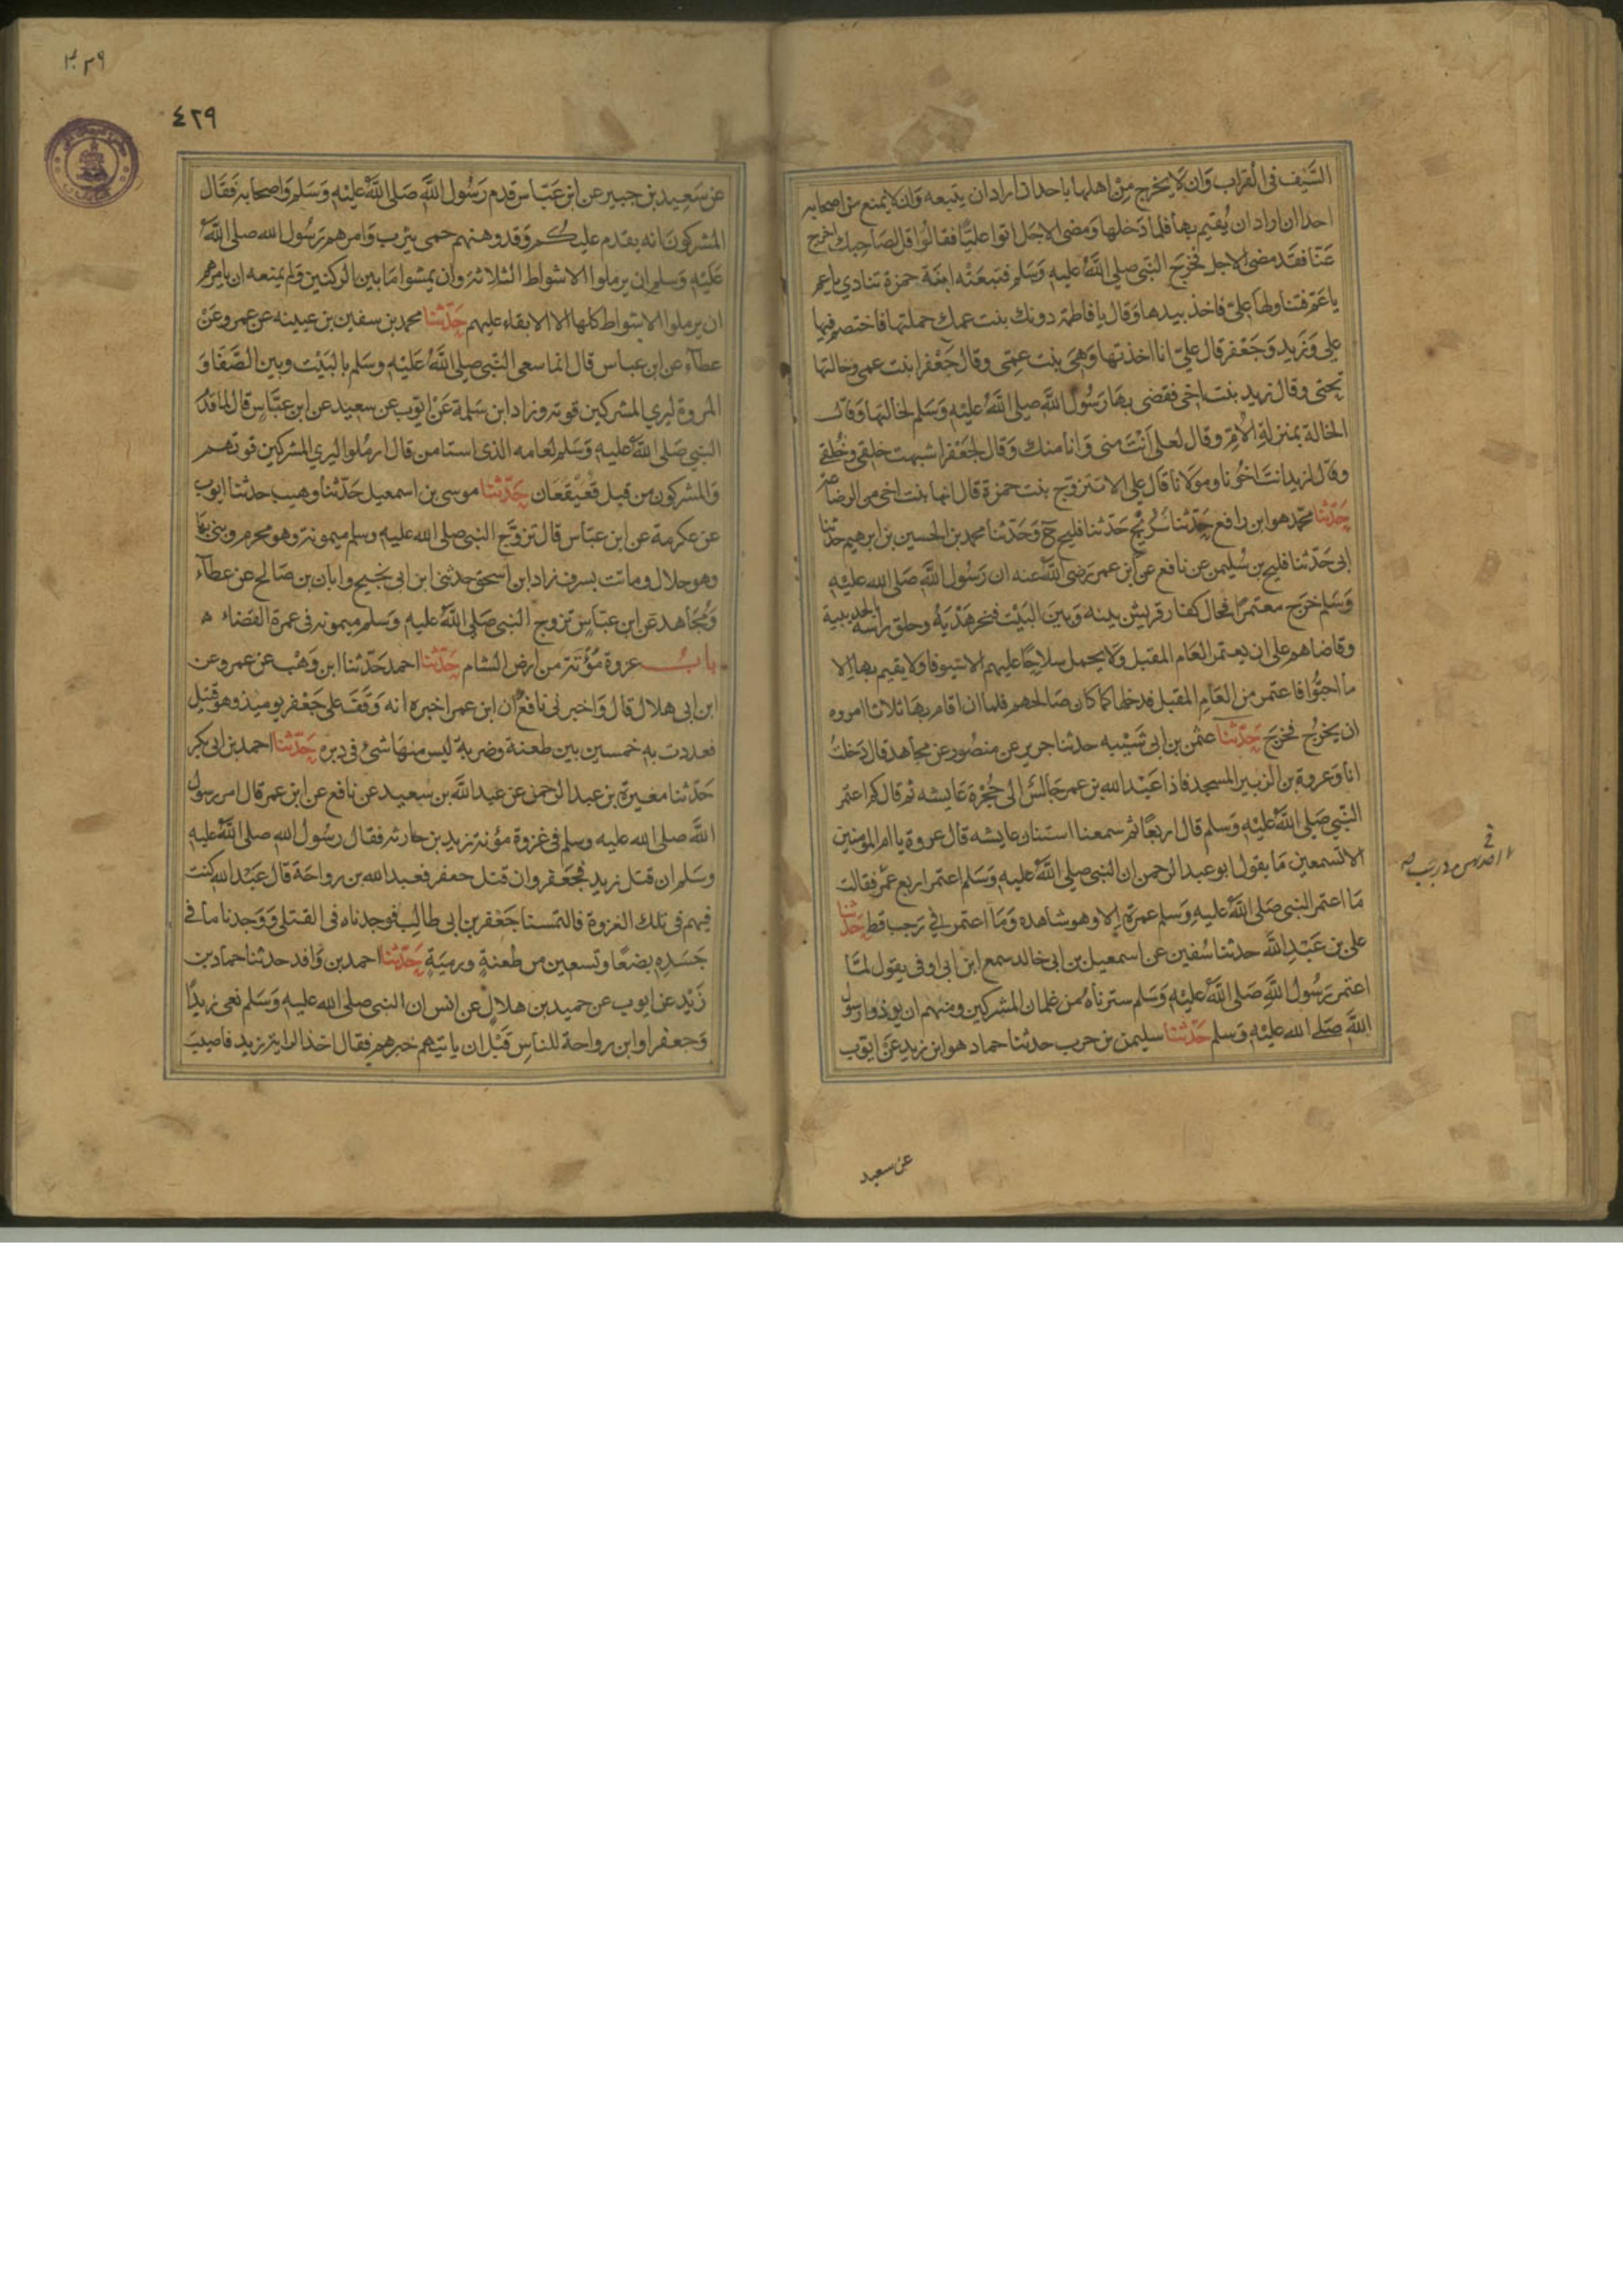 السَّيْف في القراب وَان لا يخرج مِنْ اهلها باحد ان اراد ان يتبعه وَان لا يمنع من اصحابه
احدا ان اراد ان يُقيم بها فلما دَخلها وَمضى الاجَل اتوا عليّا فقالوُا قل لصَاحِبك اخرج
عَنّا فقد مضى الاجل فخرَجَ النبّى صلى اللهُ عليه وَسَلم فتبعَتْه ابنَة حمزة تنادي يا عم
يا عَمّ فتناولها عَلىّ فاخذ بيدها وَقال يا فاطمة دونك بنت عمك حملتها فاختصم فيها
على وَزَيد وَجَعْفر قال علىّ انا اخذتها وَهىَ بنت عمّى وقال جَعْفر ابنت عمى وخالتها
تحتى وقال زيد بنت اخى فقضى بهَا رَسُول اللهِ صلى اللهُ عليْهِ وَسَلم لخالتها وَقال
الخالة بمنزلةِ الاُمّ وقال لعلى اَنْتَ منى وَانا منك وَقال لجَعْفر اشبهت خلقى وخُلقى
وقال لزيد انت اَخوُنا وموَلانا قال على الا تتزوج بنت حمزة قال انها بنت اخى من الرضاعة
حَدّثنا محمّد هو ابن رافع حَدّثنا سُرَيْج حَدّثنا فليح ح وَحَدّثنا محمد بن الحسين بن ابرهيم حدّثنا
ابى حَدّثنا فليح بن سُليمن عن نافع عن ابن عمر رَضى اللهُ عنه ان رَسُول اللهِ صَلى الله عليْهِ
وَسَلم خرَج معتمرًا فحال كفار قريش بينه وَبينَ البَيْت فنحر هَدْيَهُ وحلق رأسَه بالحديبية
وقاضاهم على ان يعتمر العَام المقبل وَلا يحمل سلاحًا عليهم الا سيوفا ولا يقيم بها الا
ما احبّوا فاعتمر من العَام المقبل فدخلها كما كان صَالحهم فلما ان اقام بهَا ثلاثا امروه
ان يخرُج فخرَجَ حَدّثنا عثمن بن ابى شَيْبه حدثنا جرير عن منصُور عن مجاهد قال دَخلتُ
انا وَعروة بن الزبير المسجد فاذا عَبْد الله بن عمر جَالسٌ الى حُجْرة عَايشه ثم قال كم اعتمر
النبّى صَلى اللهُ عليْهِ وَسَلم قال اربعًا ثم سمعنا استنان عايشه قال عروة يا ام المومنين
الا تسمعين مَا يقول ابو عبد الرحمن ان النبى صلى اللهُ عليهِ وَسَلم اعتمر اربع عُمَر فقالت
مَا اعتمر النبى صَلى اللهُ عليهِ وَسَلم عمرَة الا وهو شاهده وَمَا اعتمر في رَجب قط حَدّثنا
على بن عَبْدِ اللهِ حدثنا سُفين عن اسمعيل بن ابى خالد سمع ابن ابى اوفى يقول لمّا
اعتمر رَسُول اللهِ صَلى اللهُ عليْهِ وَسَلم سترناهُ من غلمان المشركين ومنهم ان يوذوا رسول
اللهِ صَلى الله عليْهِ وَسلم حَدّثنا سليمن بن حرب حدثنا حماد هو ابن زيد عَنْ ايوب
عن سعيد
٤٢٩
عن سَعيد بن جبير عن ابن عَبّاس قدم رَسُول اللهِ صَلى اللهُ عليْهِ وَسَلم وَاصحابه فَقَال
المشركونَ انه يقدم عليكم وَقد وهنهم حمى يثرب وَامرهم رَسُول الله صلى اللهُ
عَليْهِ وَسَلم ان يرملوا الاشواط الثلاثة وان يمشوا مَا بين الركنين وَلم يمنعه ان يامرهم
ان يرملوا الاشواط كلها الا الابقاء عليهم حَدّثنا محمد بن سفين بن عيينه عن عمرو عَنْ
عطآء عن ابن عباس قال انما سعى النبّى صلى اللهُ عَليْهِ وسَلم بالبَيْت وبين الصَّفَا وَ
المروة ليري المشركين قوته وزاد ابن سَلمة عَنْ ايّوب عن سعيد عن ابن عبّاس قال لما قدم
النبي صَلى اللهُ عليهِ وَسَلم لعامه الذى استامن قال ارمُلوا ليري المشركين قوتهم
وَالمشركون من قبل قعَيْقعَان حَدّثنا موسى بن اسمعيل حَدّثنا وهيب حدثنا ايوب
عن عكرمة عن ابن عبّاس قال تزوَّج النبى صلى الله عليه وسلم ميمونة وهو محرم وبنى بهَا
وهو حلال وماتت بسرف زاد ابن اسحق حدثنى ابن ابى نجيح وابان بن صَالح عن عطآء
وَمُجَاهد عَن ابن عبّاسٍ تزوج النبى صَلى اللهُ عليهِ وَسَلم ميمونه فى عمرة القضاء ه
باب عزوة مُؤْتَة من ارض الشام حَدّثنا احمد حَدّثنا ابن وَهْب عن عمرو عن
ابن ابى هلال قال وَاخبرنى نافعٌ ان ابن عمر اخبره انه وَقَفَ على جَعْفر يوميذ وهو قتيل
فعددت به خمسين بين طعنة وضربة ليس منهَا شىْ فى دبره حَدّثنا احمد بن ابى بكر
حَدّثنا مغيرة بن عبد الرّحمن عن عبد اللهِ بن سعيد عن نافع عن ابن عمر قال امر رسول
اللهِ صلى الله عليه وسلم فى غزوة مؤتة زيد بن حارثه فقال رسُول الله صلى اللهُ عليهِ
وسَلم ان قتل زيد فجعفر وان قتل جعفر فعبد الله بن رواحة قال عَبْد الله كنت
فيهم فى تلك الغزوة فالتمسنا جَعْفر بن ابى طالب فوجدناه فى القتلى وَوَجدنا ما فى
جَسَدِه بضعًا وتسعين من طعنةٍ ورميَةٍ حَدّثنا احمد بن وَاقد حدثنا حماد بن
زَيْد عن ايوب عن حميد بن هلالٍ عن انس ان النبى صلى الله عليه وَسَلم نعى زيدًا
وَجعفرا وابن رواحة للناس قَبْل ان ياتيهم خبرهم فقال اخذ الراية زيد فاصيبَ